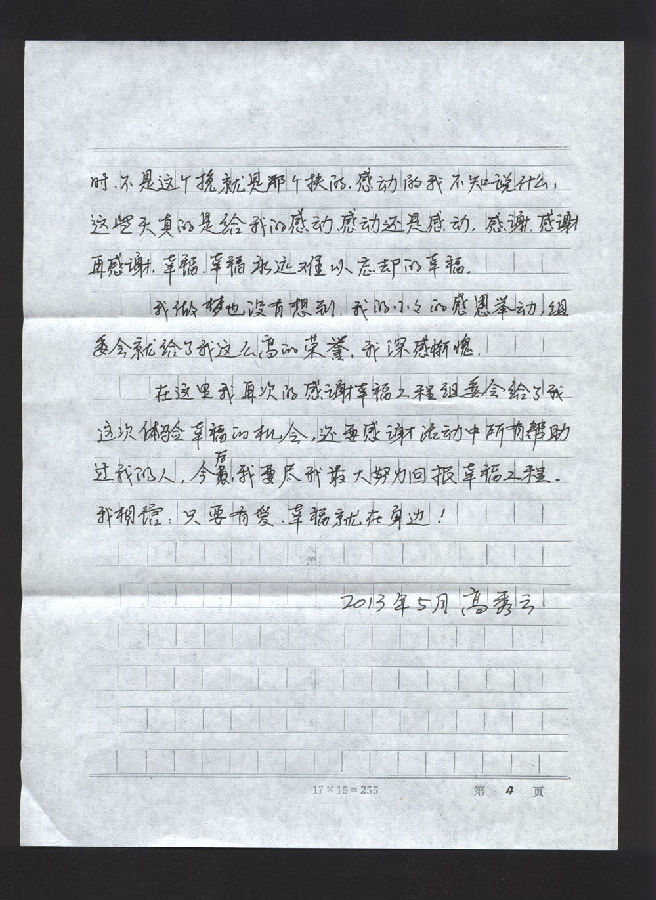 时.不是这个搀就是那个扶的.感动的我不知说什么,
这些天真的是给我的感动.感动还是感动.感谢.感谢
再感谢.幸福.幸福永远难以忘却的幸福.
我做梦也没有想到.我的小小的感恩举动组
委会就给了我这么高的荣誉,我深感惭愧.
在这里我再次的感谢幸福工程组委会给了我
这次体验幸福的机会,还要感谢活动中所有帮助
过我的人,今后,我要尽我最大努力回报幸福工程.
我相信:只要有爱.幸福就在身边!
2013年5月 高秀云
17×15=255 第 4 页